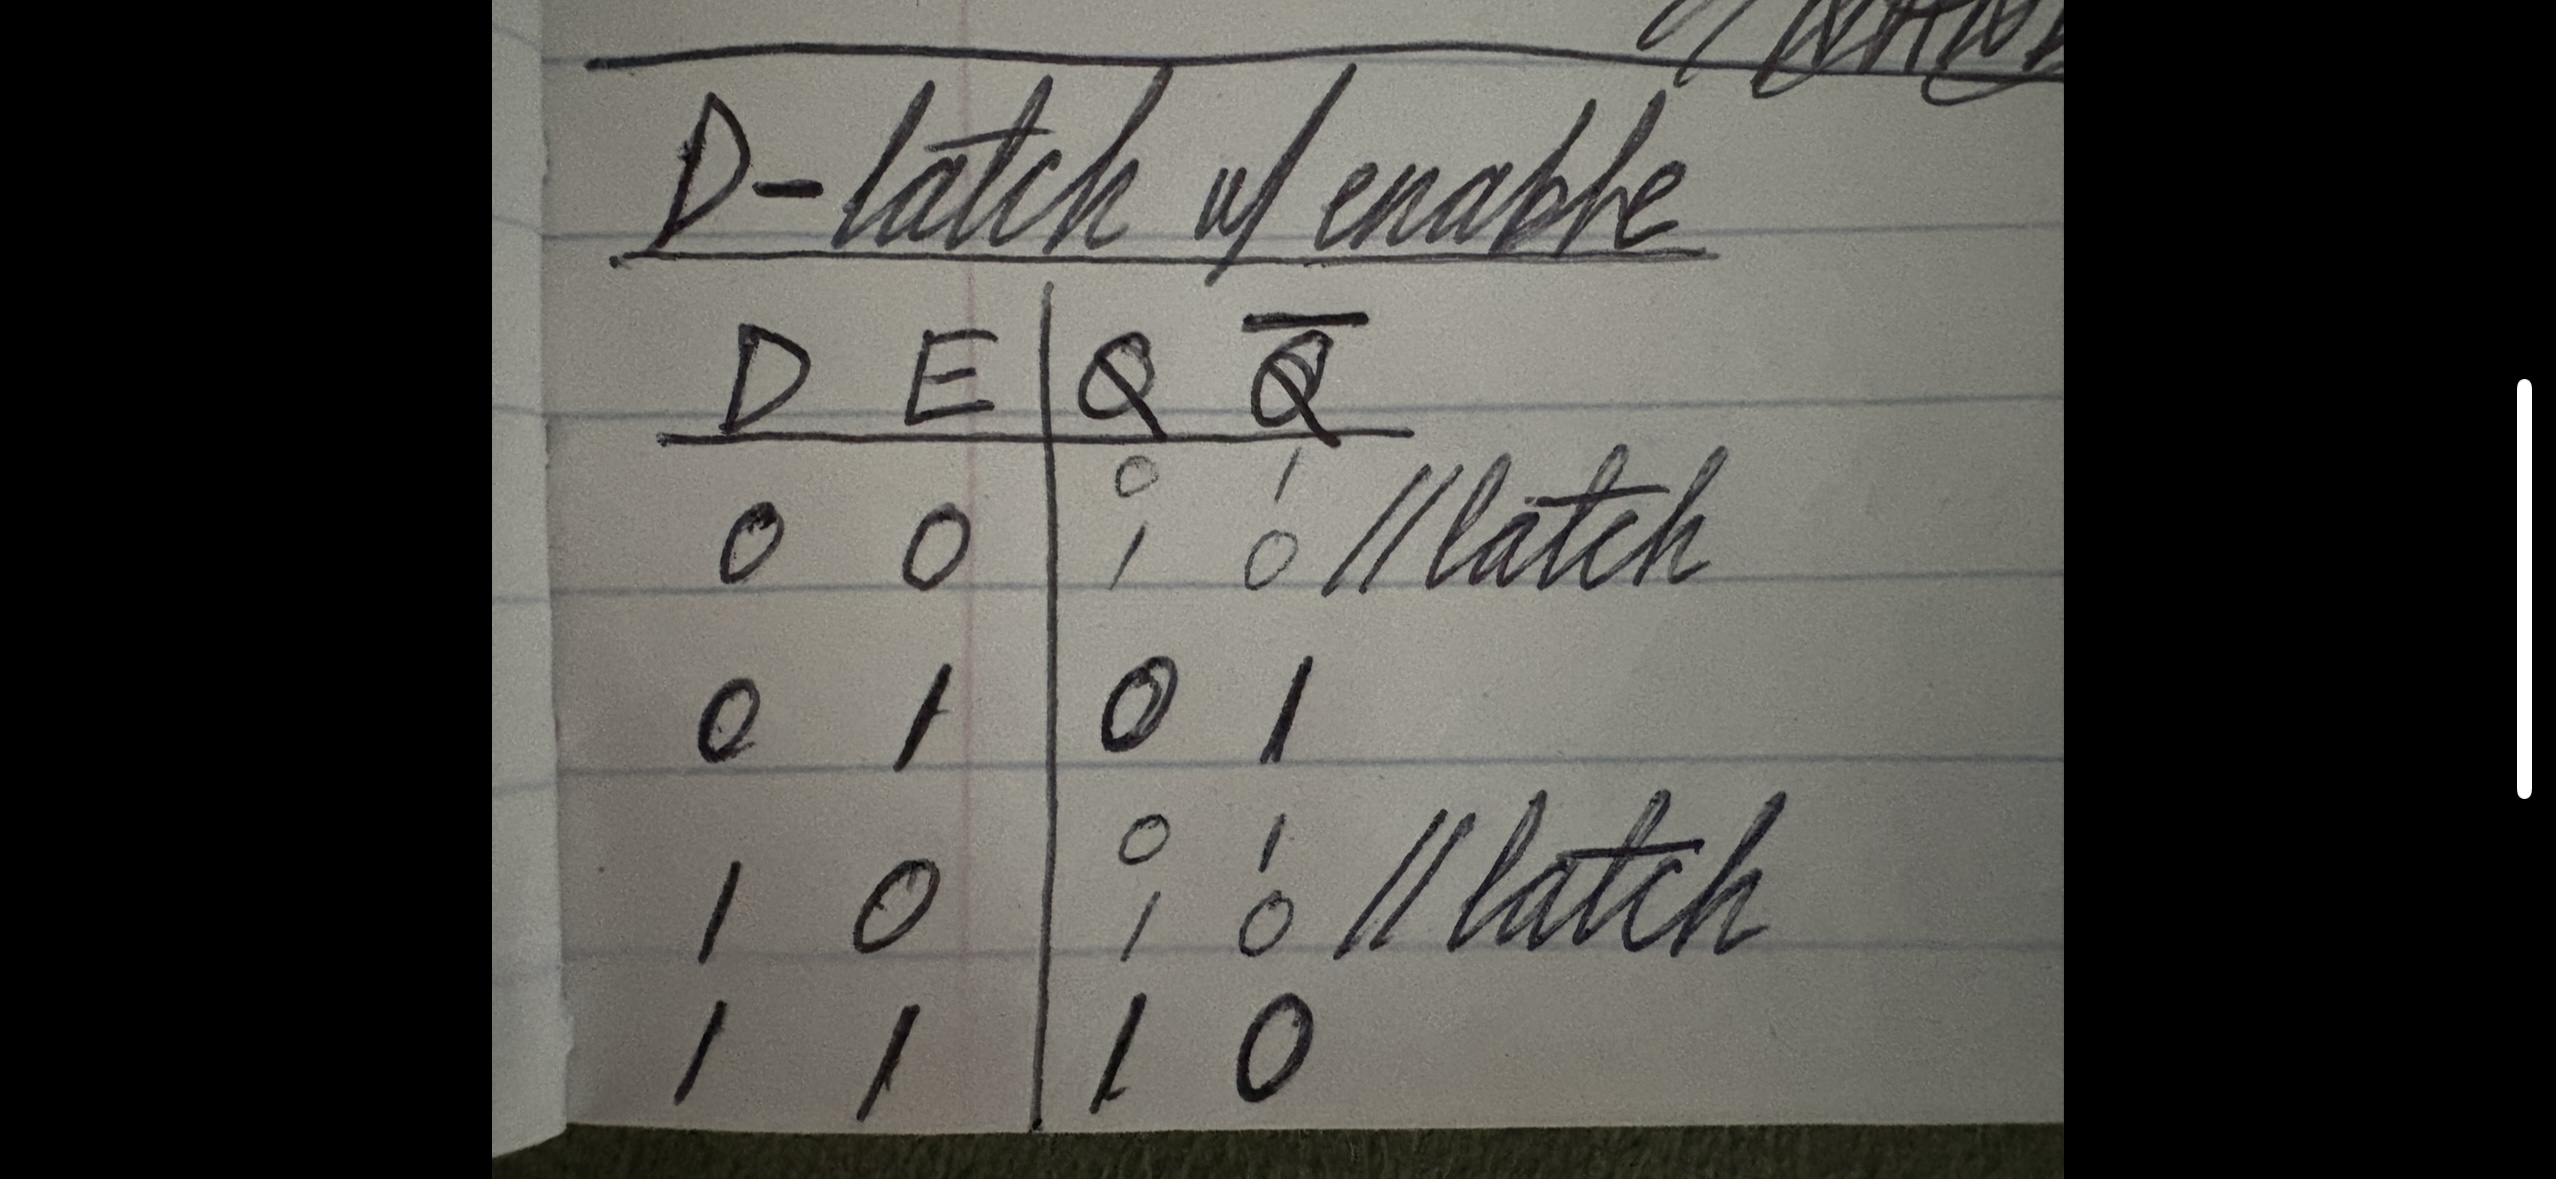 D-latch w/ enable
D E Q Q̅
0 1
0 0 1 0 //latch
0 1 0 1
0 1
1 0 1 0 //latch
1 1 1 0